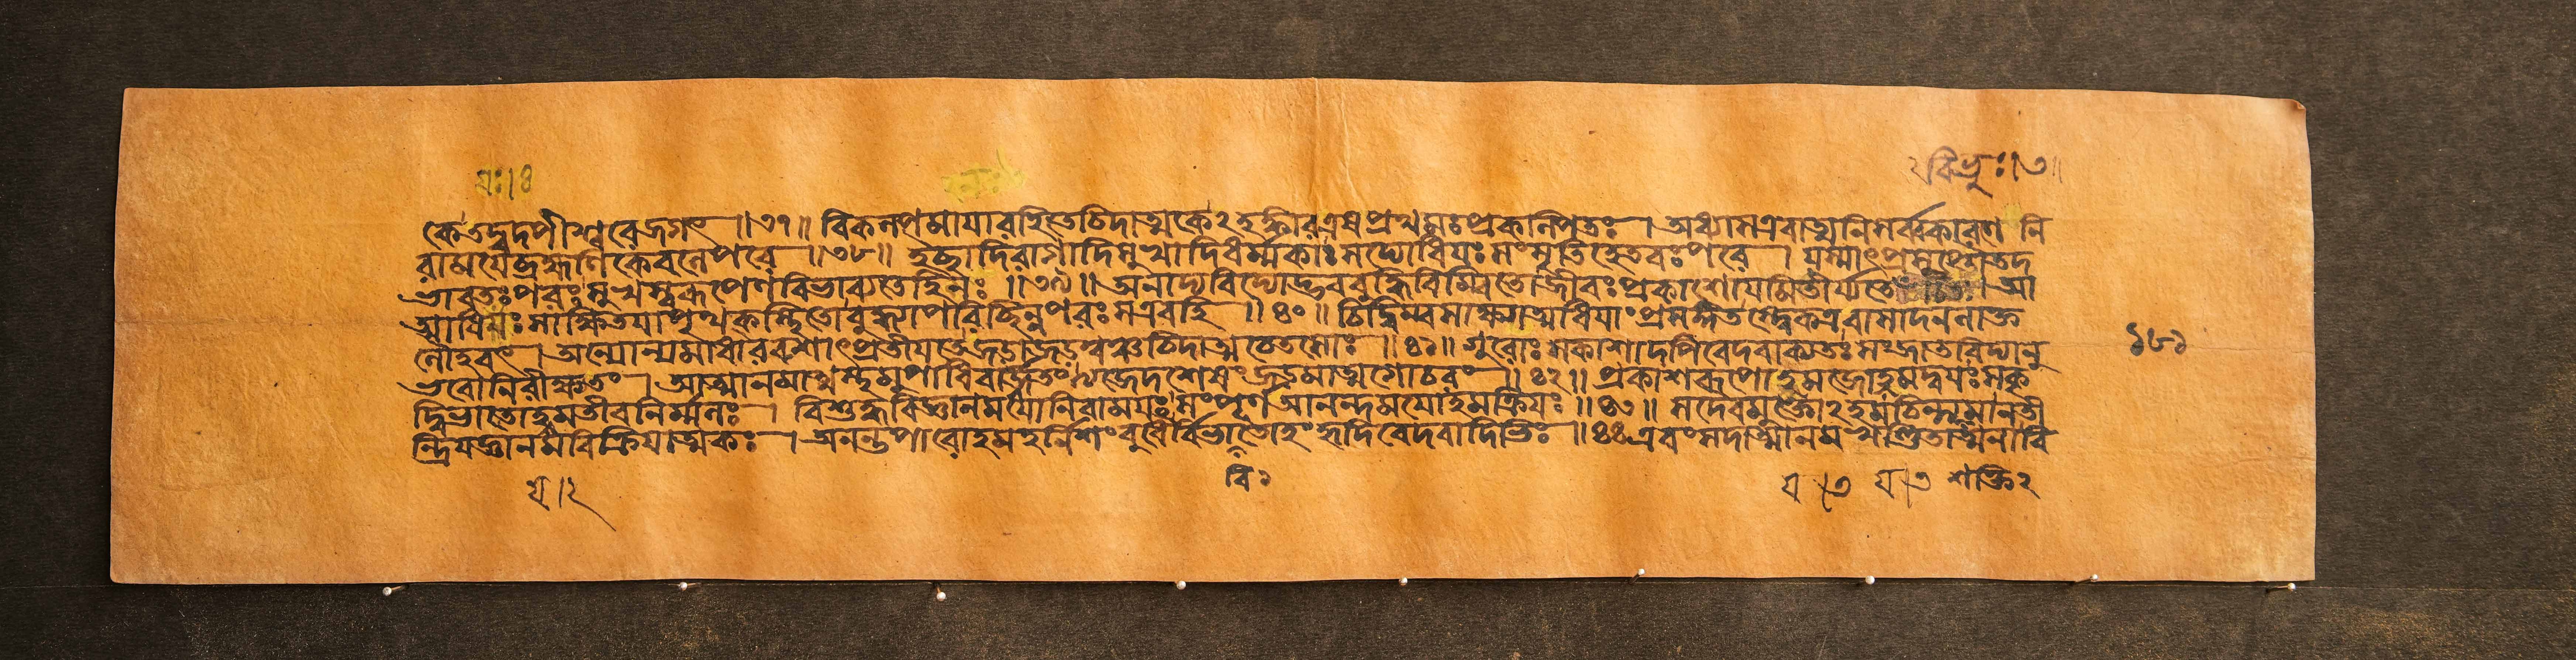 যঃ।৪
২বিপ্রুঃ।৩॥
কেতদ্বদপীশ্বরেজগৎ ॥৩৭॥ বিকল্পমায়ারহিতেচিদাত্মকে২হঙ্কারএষপ্রথমঃপ্রকল্পিতঃ । অধ্যাসএবাত্মনিসর্ব্বকারণে নি
রাময়েব্রহ্মণিকেবলেপরে ॥৩৮॥ ইচ্ছাদিরাগাদিসুখাদিধর্ম্মিকাঃসদাধিয়ঃসংসৃতিহেতবঃপরে । যস্মাৎপ্রসুপ্তৌতদ
ভাবতঃপরঃসুখস্বরূপেণবিভাব্যতেহিনঃ ॥৩৯॥ অনাদ্যবিদ্যোদ্ভববুদ্ধিবিম্বিতোজীবঃপ্রকাশোয়মিতীর্য্যতে । আ
ত্মাধিয়ঃসাক্ষিতয়াপৃথকস্থিতোবুদ্ধ্যাপরিচ্ছিন্নপরঃসএবহি ॥৪০॥ চিদ্বিম্বসাক্ষ্যাত্মধিয়াংপ্রসঙ্গতস্ত্বেকত্রবাসাদনলাক্ত
লৌহবৎ । অন্যোন্যমাধ্যাসবশাৎপ্রতীয়তেজড়াজড়ত্বঞ্চচিদাত্মচেতসোঃ ॥৪১॥ গুরোঃসকাশাদপিবেদবাক্যতঃসংজাতবিদ্যানু
ভবোনিরীক্ষ্যতং । স্বাত্মানমাত্মস্থমুপাধিবর্জ্জিতংত্যজেদশেষংজড়মাত্মগোচরং ॥৪২॥ প্রকাশরূপোহমজোহমদ্বয়ঃসকৃ
দ্বিভাতোহমতীবনির্ম্মলঃ । বিশুদ্ধবিজ্ঞানময়োনিরাময়ঃসংপূর্ণআনন্দময়োহমক্রিয়ঃ ॥৪৩॥ সদৈবমুক্তো২হমচিন্ত্যমানতী
ন্দ্রিয়জ্ঞানমবিক্রিয়াত্মকঃ । অনন্তপারোহমহর্নিশংবুধৈর্বিভাতোহংহৃদিবেদবাদিভিঃ ॥৪৪এবংসদাত্মানমখণ্ডিতাত্মনাবি
১৮১
য ।২
বি১
য ।৩ য ।৩ শক্তি২